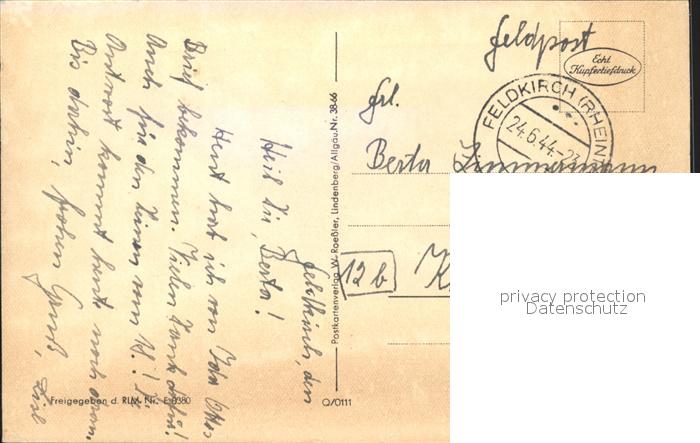 Feldpost
Echt
Kupfertiefdruck
FELDKIRCH (RHEIN
24.6.44.-2
Frl.
Berta Zimmermann
12b
K
privacy protection
Datenschutz
Postkartenverlag W. Roeßler, Lindenberg/Allgäu. Nr. 38-66
Freigegeben d. RLM. Nr. E 8380
Q/0111
Feldkirch, den
Heil Dir, Berta!
Heut hab ich von Ida
Brief bekommen. Vielen Dank dafür!
Auch für den Deinen vom 18.!
Antwort kommt heut noch dran.
Bis dahin, frohen Gruß,